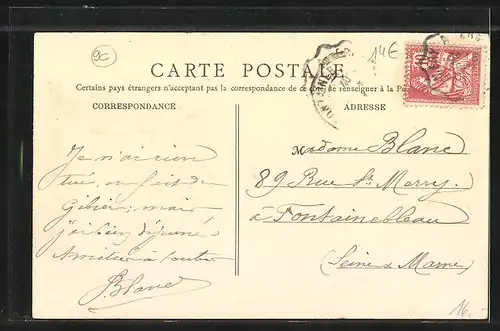 9c
14€
CARTE POSTALE
Certains pays étrangers n'acceptant pas la correspondance de ce se renseigner à la
CORRESPONDANCE
ADRESSE
Je n'ai rien
tué, en fait de
Gibier; mais
j'ai bien déjeuné
à toutes
Blanc
Madame Blanc
89 Rue St Merry.
à Fontainebleau
(Seine & Marne)
16.-